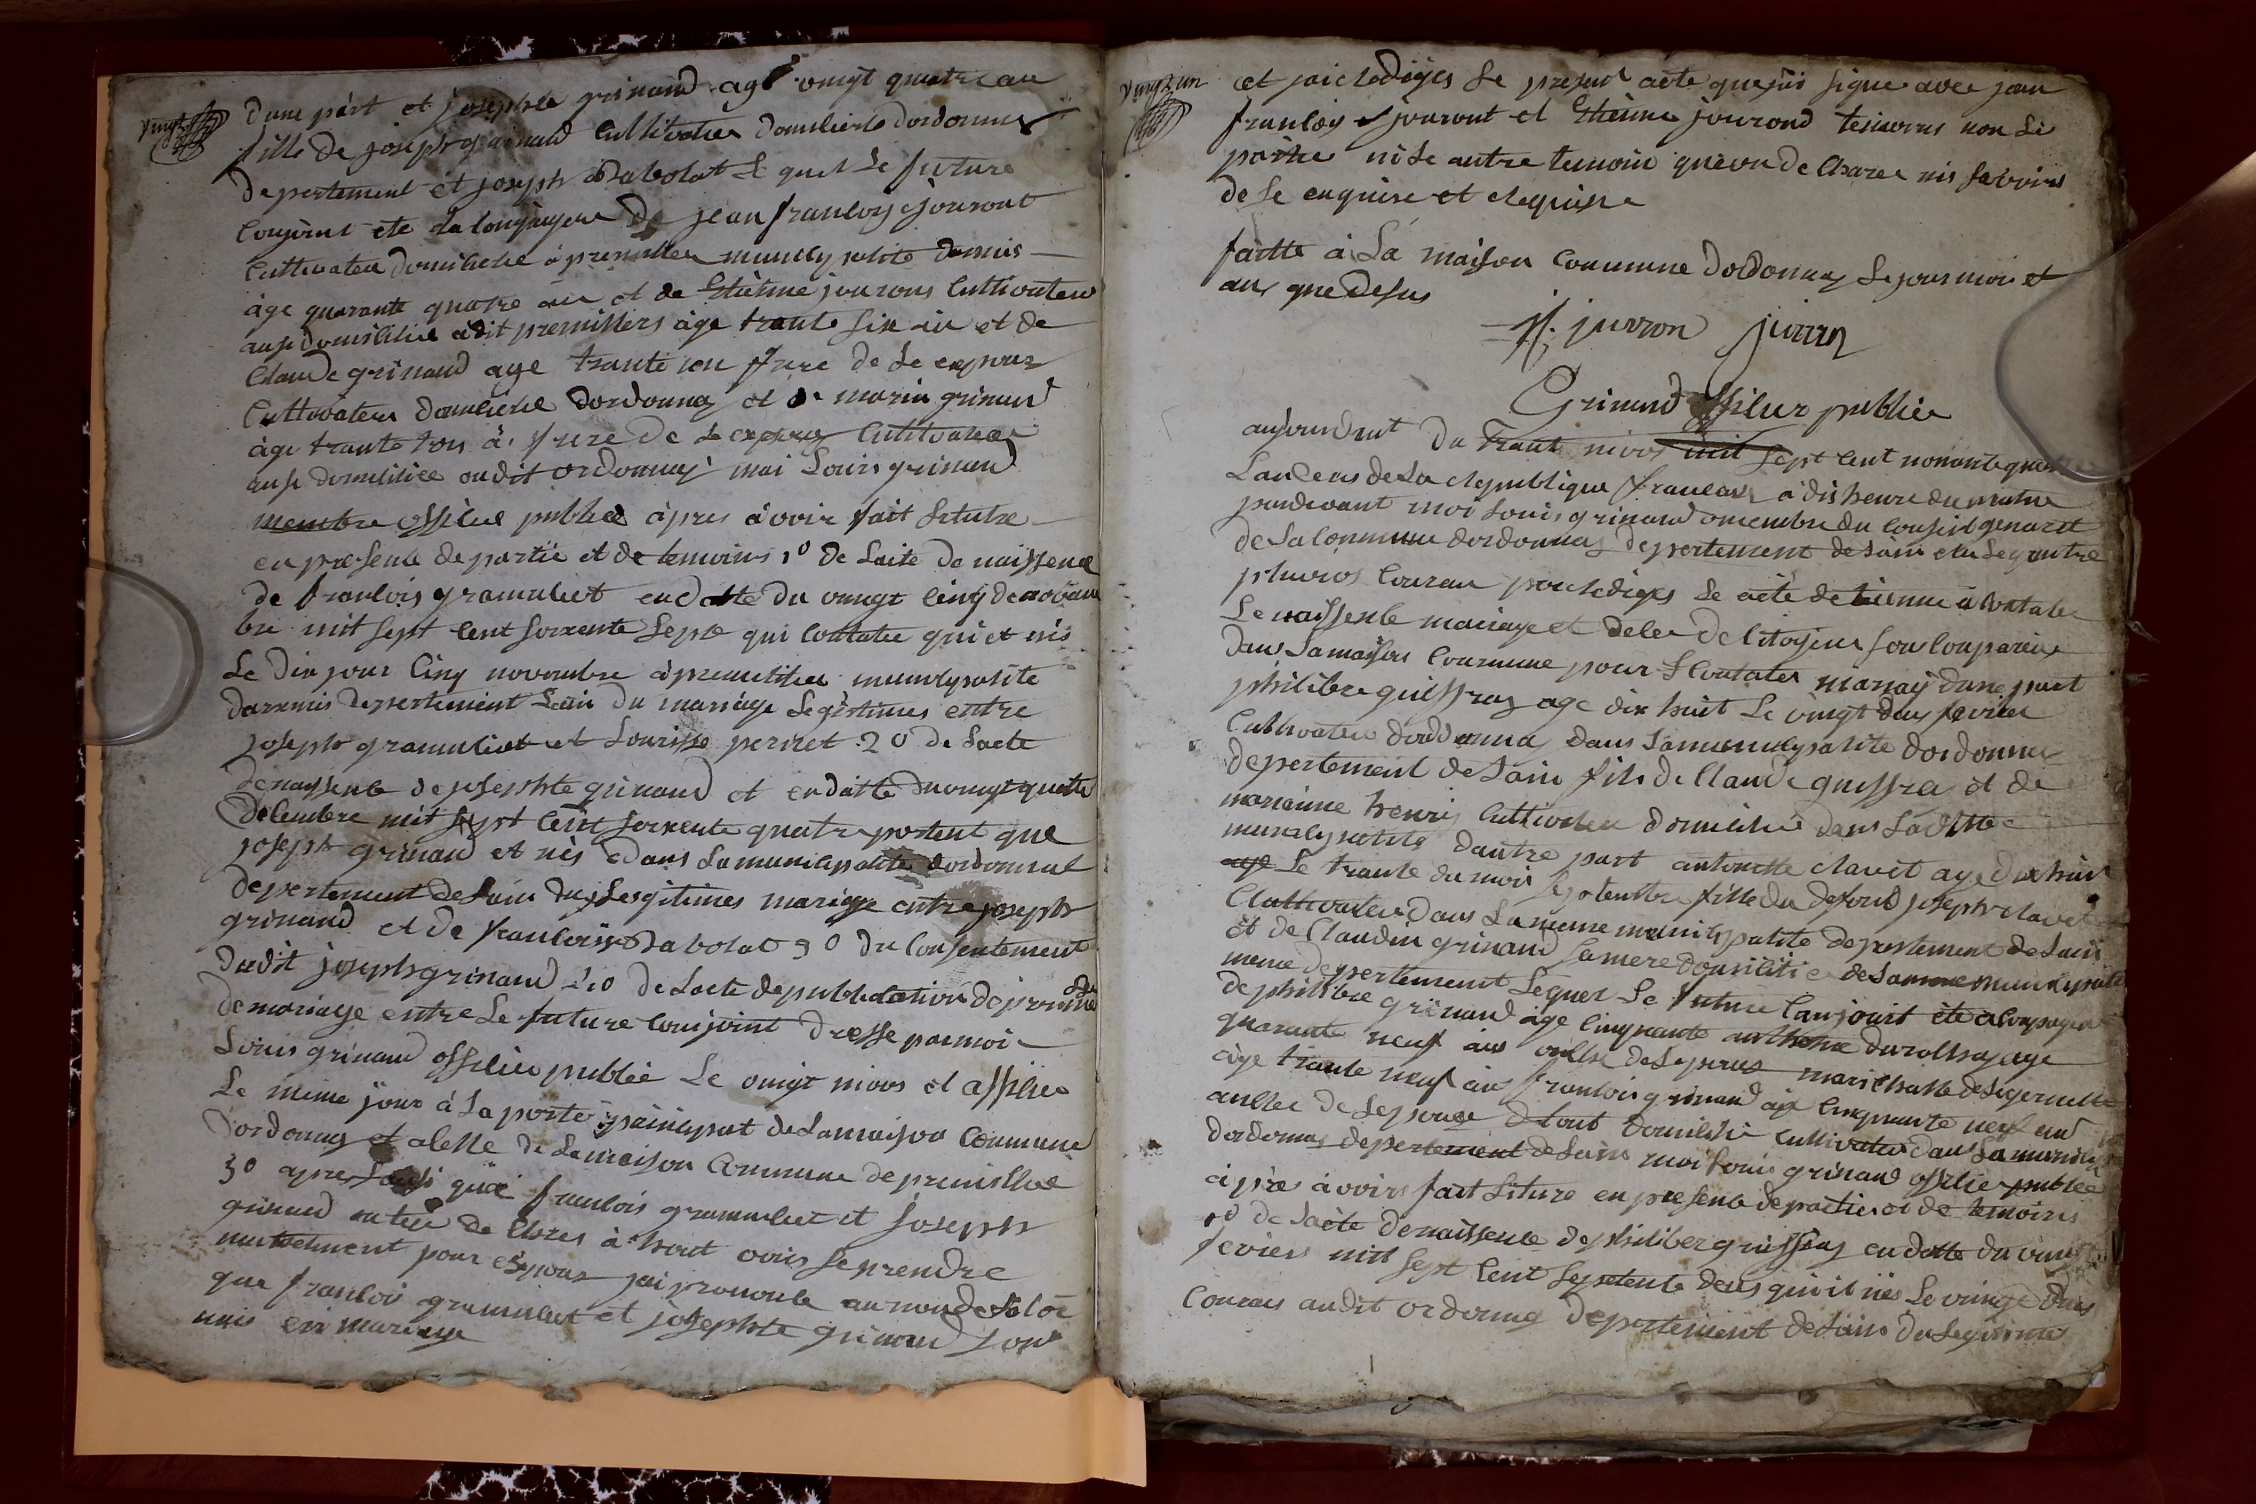 vingt
dune part et josephte grinand age vingt quatre an
fille de joseph grinand Cultivateur domilicile dordonnas
depertement et joseph Rabolat Le quel Le future
Conjoint ete da Conpagne De jean francoy jouront
Cultivateur domilicile a premillieu municypalité darnis
âge quarante quatre ans et de Etienne jourons Cultivateur
ausi domilicilie audit premilliers âge trante six an et de
Claude grinand age trante un frere de Le expous
Cultivateur domilicile dordonnas et de marin grinand
âge trante trois a. frere de Le expous Cultivateur
ausi domilicilie audit ordonnas moi Louis grinand
membre officié publice âpres âvoir fait Leture
en presence de partie et de temoins 1º de Lacte de naissence
de francois gramuliet en datte du vingt Cinq de novam
bre mil sept Cent soixente Septe qui Contatee qui et nés
Le dix jour Cinq novembre a premillieu municypalité
daramis depertement Lain du mariage Legitimes entre
joseph gramuliet et Louisse perret 2º de Lacte
de naissence de josephte grinand et en datte du vingt quatre
decembre mil sept Cent soixente quatre portent que
joseph grinand et nés dans La municypalité dordonnas
depertement de Lain du Lesgitimes mariage entre joseph
grinand et de francoise Rabolat 3º du Consentement
dudit joseph grinand 4º de Lacte de publication de promesse
de mariage entre Le future Conjoint dresse par moi
Louis grinand officie publié Le vingt nivos et affiché
Le meme jour â La porte principal de La maison Commune
dordonnas et a Celle de La maison Commune de premillieu
5º apres aussi que francois gramuliet et Joseph
grinand a haut voix Se prendre
mutuelment pour expous jai prononcé au nom de La loi
que francois gramuliet et josephte grinand Sont
unis en mariage
vingt un
et jai redigés Le present acte que jai signé avec jean
francoy jouront et Etienne jourond temoins non Le
partie ni Le autre temoin qui on declare nis savoirs
de Le enquise et requise
faitte â La maison Commune dordonnas Le jour moi et
an que desus
jf. jurron jurron
Grinand officier public
aujourdeut du trante nivos mil sept Cent nonante quatre
Lan deus de La republique francois â dis heure du matin
pardevant moi Louis grinand membre du Conseil general
de La Commune dordonnas depertement de Lain elu Le quatre
pluvios Couran pour rediges Le acte de tienne a Contater
Le naissence mariage et deces de Citoyens son Conparue
dans La maison Commune pour Contater mariage dune part
philibre guissray age dix huit Le vingt deus fevrier
Cultivateur dordonnas dans La municypalité dordonnas
depertement de Lain fils de Claude guissray et de
marianne henry Cultivateur domilicilié dans Laditte
municypalité dautre part antoinette Claret age dix huit
Le trante du moi septembre fille du defont joseph claret
Cultivateur dans La meme municypalité depertement de Lain
et de Claudin grinand Sa mere domilicilie de La meme municypalité
meme depertement Lequel Le future Conjoint été aConpagne
de philibre grinand âge Cinquante
quarante neuf ans oncle de Lepous
âge trante neuf an francois grinand âge Cinquante neuf an
oncle de Lepouse tout domilicilié Cultivateur dans La municy
dordonnas depertement de Lain moi Louis grinand officie publice
âprès âvoirs fait Leture en presence de partie et de temoins
1º de Lacte de naissence de philiber guissray en datte du vingt
feviers mil sept Cent septente deus qui et nés Le vingt deus
Courans audit ordonnas depertement de Lain du Legitime